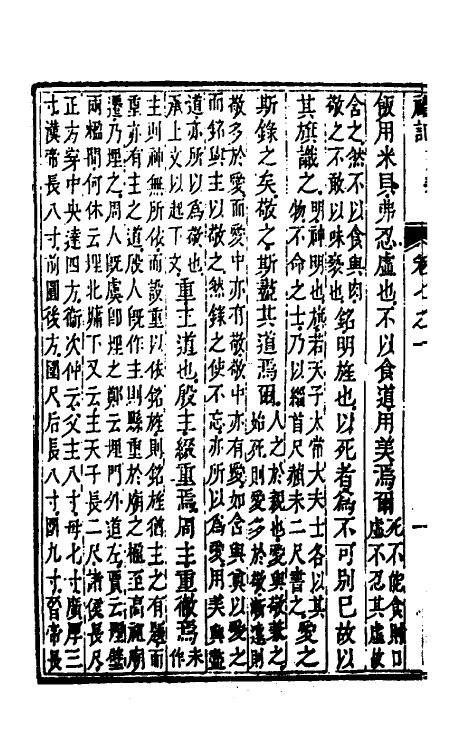 飯用米貝弗忍虛也不以食道用美焉爾死不能食則口
虛不忍其虛故
含之然不以食與肉
敬之不敢以味褻也銘明旌也以死者為不可別已故以
其旗識之明神明也旌若天子太常大夫士各以其
物不命之士乃以緇首尺赬末二尺書之愛之
斯錄之矣敬之斯盡其道焉爾人之於親也愛與敬兼之
始死則愛多於敬漸遠則
敬多於愛而愛中亦有敬敬中亦有愛如含與奠以愛之
而銘與主以敬之然錄之使不忘亦所以為愛用美與盡
道亦所以為敬也
承上文以起下文重主道也殷主綴重焉周主重徹焉未
作
主則神無所依而設重以依銘旌則銘旌猶主之有題而
重亦有主之道殷人既作主則縣重於廟之楹至高祖廟
遷乃埋之周人既虞即埋之鄭云埋門外道左賈云埋壁
兩楹間何休云埋北牖下又云主天子長二尺諸侯長尺
正方穿中央達四方衛次仲云父主八寸母七寸廣厚三
寸漢帝長八寸前圓後方圍尺后長八寸圍九寸晉帝長
卷七之一